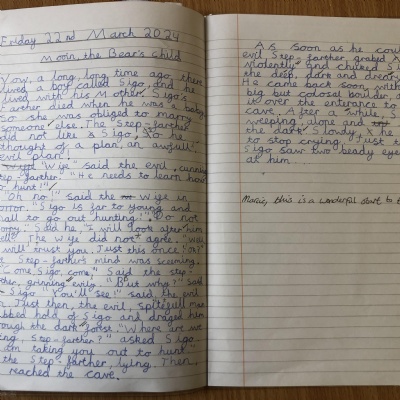 Friday 22nd March 2024
Morin, the Bear's Child
Now, a long, long time ago, there
lived a boy called Sigo, and he
lived with his Mother. Sigo's
Farther died when he was a baby
So she was obliged to marry
someone else. The Step-farther
did not like Sigo, so he
thought of a plan, an awfull
evil plan.
"Wife" said the evil, cunning
step-farther "He needs to learn how
to hunt!"
"Oh no!" said the wife in
horror. "Sigo is far to young and
small to go out hunting!" "Do not
worry" Said he, "I will look after him
well" The wife did not agree. "Well
will trust you, Just this once "ok?"
Step-farther's mind was
"Come Sigo, come," Said the step-
farther, grinning evily. "But why?" Said
Sigo "You'll see!" said the evil
Just then, the evil, spitefull man
grabbed hold of Sigo and draged him
through the dark forse. "Where are we
going, Step-farther?" asked Sigo
"I am taking you out to hunt"
the Step-farther, lying. Then
reached the cave.
As soon as he could
evil Step-farther grabed
violently and chuked
the deep, dark and dreary
He came back soon, with
big but colosal boulder, a
it over the entrance to
cave. After a while, S
weeping, alone and
the dark. Slowly, he
to stop crying. Just t
Sigo saw two beady eye
at him.
this is a wonderful start to t